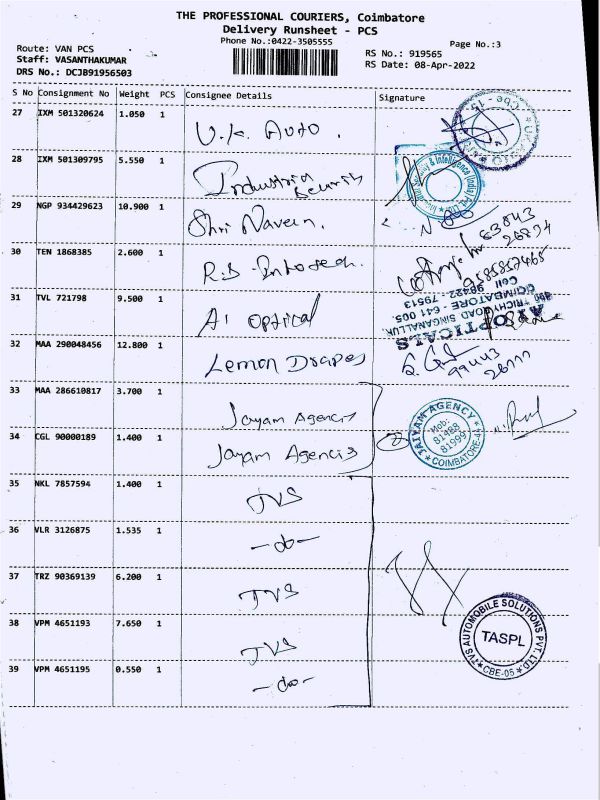 THE PROFESSIONAL COURIERS, Coimbatore
Delivery Runsheet - PCS
Phone No.:0422-3505555
Page No.:3
Route: VAN PCS
Staff: VASANTHAKUMAR
DRS No.: DCJB91956503
RS No.: 919565
RS Date: 08-Apr-2022
S No Consignment No Weight PCS Consignee Details Signature
27 IXM 501320624 1.050 1 U.K. Auto.
28 IXM 501309795 5.550 1 Industrial Security
29 NGP 934429623 10.900 1 Shri Naveen.
63843
26834
30 TEN 1868385 2.600 1 R.S - Infotech.
9585857465
31 TVL 721798 9.500 1 A1 Optical
A1 OPTICALS
TRICHY ROAD SINGANALLUR,
COIMBATORE - 641 005.
Cell 98422 - 79513
32 MAA 290048456 12.800 1 Lemon Drapes
99443
33 MAA 286610817 3.700 1 Jayam Agencis
JAIYAM AGENCY
Mob:
81488
81999
COIMBATORE-4
34 CGL 90000189 1.400 1 Jayam Agencis
35 NKL 7857594 1.400 1 TVS
36 VLR 3126875 1.535 1 -do-
37 TRZ 90369139 6.200 1 TVS
38 VPM 4651193 7.650 1 TVS
TVS AUTOMOBILE SOLUTIONS PVT. LTD.
TASPL
CBE-05
39 VPM 4651195 0.550 1 -do-